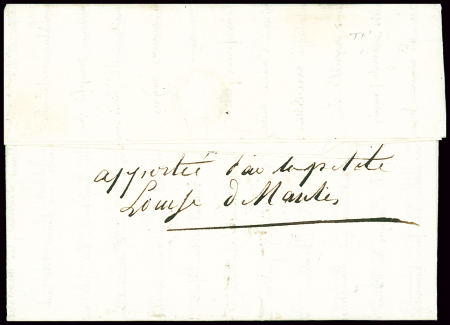 apportée par la petite
Louise de Mantes